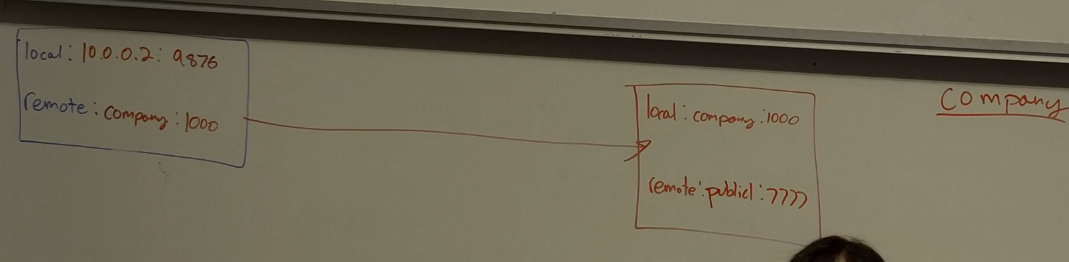 local: 10.0.0.2: 9876
remote: company: 1000
local: company: 1000
remote: public1: 7777
Company